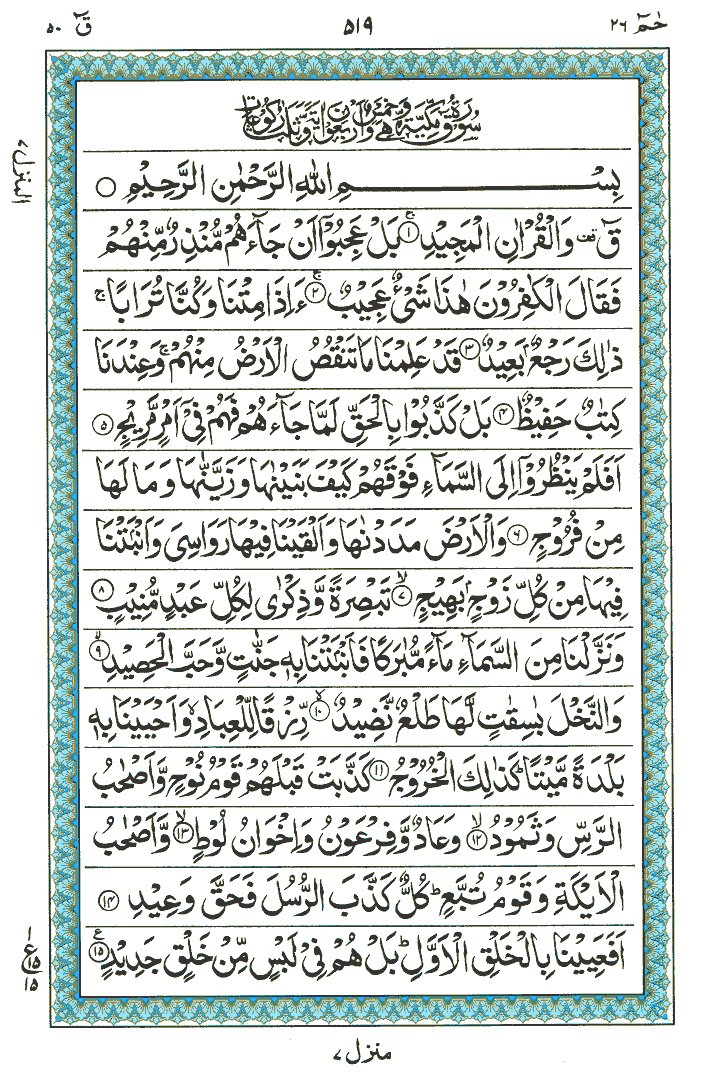 حٰمٓ ٢٦
٥١٩
قٓ ٥٠
سُوْرَةُ قٓ مَكِّيَّةٌ وَّهِيَ خَمْسٌ وَّاَرْبَعُوْنَ اٰيَةً وَّثَلٰثُ رُكُوْعَاتٍ
بِسْــــــمِ اللّٰهِ الرَّحْمٰنِ الرَّحِيْمِ ○
قٓ ۚ وَالْقُرْاٰنِ الْمَجِيْدِ ۝١ بَلْ عَجِبُوْۤا اَنْ جَآءَهُمْ مُّنْذِرٌ مِّنْهُمْ
فَقَالَ الْكٰفِرُوْنَ هٰذَا شَيْءٌ عَجِيْبٌ ۝٢ ءَاِذَا مِتْنَا وَكُنَّا تُرَابًا ۚ
ذٰلِكَ رَجْعٌۢ بَعِيْدٌ ۝٣ قَدْ عَلِمْنَا مَا تَنْقُصُ الْاَرْضُ مِنْهُمْ ۚ وَعِنْدَنَا
كِتٰبٌ حَفِيْظٌ ۝٤ بَلْ كَذَّبُوْا بِالْحَقِّ لَمَّا جَآءَهُمْ فَهُمْ فِيْۤ اَمْرٍ مَّرِيْجٍ ۝٥
اَفَلَمْ يَنْظُرُوْۤا اِلَى السَّمَآءِ فَوْقَهُمْ كَيْفَ بَنَيْنٰهَا وَزَيَّنّٰهَا وَمَا لَهَا
مِنْ فُرُوْجٍ ۝٦ وَالْاَرْضَ مَدَدْنٰهَا وَاَلْقَيْنَا فِيْهَا رَوَاسِيَ وَاَنْۢبَتْنَا
فِيْهَا مِنْ كُلِّ زَوْجٍۭ بَهِيْجٍ ۝٧ تَبْصِرَةً وَّذِكْرٰى لِكُلِّ عَبْدٍ مُّنِيْبٍ ۝٨
وَنَزَّلْنَا مِنَ السَّمَآءِ مَآءً مُّبٰرَكًا فَاَنْۢبَتْنَا بِهٖ جَنّٰتٍ وَّحَبَّ الْحَصِيْدِ ۝٩
وَالنَّخْلَ بٰسِقٰتٍ لَّهَا طَلْعٌ نَّضِيْدٌ ۝١٠ رِّزْقًا لِّلْعِبَادِ ۙ وَاَحْيَيْنَا بِهٖ
بَلْدَةً مَّيْتًا ؕ كَذٰلِكَ الْخُرُوْجُ ۝١١ كَذَّبَتْ قَبْلَهُمْ قَوْمُ نُوْحٍ وَّاَصْحٰبُ
الرَّسِّ وَثَمُوْدُ ۝١٢ وَعَادٌ وَّفِرْعَوْنُ وَاِخْوَانُ لُوْطٍ ۝١٣ وَّاَصْحٰبُ
الْاَيْكَةِ وَقَوْمُ تُبَّعٍ ؕ كُلٌّ كَذَّبَ الرُّسُلَ فَحَقَّ وَعِيْدِ ۝١٤
اَفَعَيِيْنَا بِالْخَلْقِ الْاَوَّلِ ؕ بَلْ هُمْ فِيْ لَبْسٍ مِّنْ خَلْقٍ جَدِيْدٍ ۝١٥
المنزل ٧
١
ع ١٥
١٥
منزل ٧